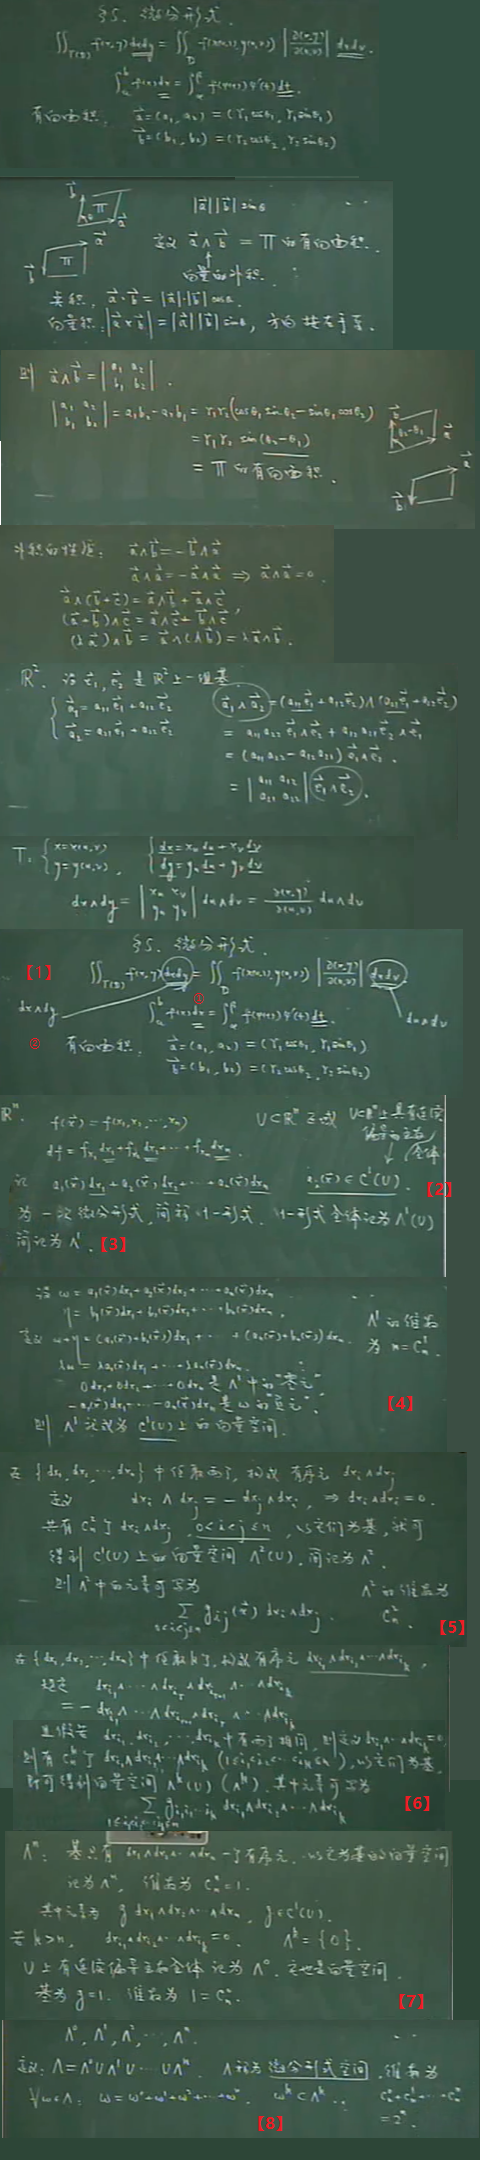 §5. 微分形式.
∬_{T(D)} f(x,y)dxdy = ∬_D f(x(u,v),y(u,v)) |∂(x,y)/∂(u,v)| du dv.
∫_a^b f(x)dx = ∫_α^β f(φ(t))φ'(t)dt.
有向面积. a⃗=(a₁, a₂)=(r₁cosθ₁, r₁sinθ₁)
b⃗=(b₁, b₂)=(r₂cosθ₂, r₂sinθ₂)
b⃗ π θ a⃗ |a⃗||b⃗| sinθ
a⃗ b⃗ π 定义 a⃗∧b⃗ = π的有向面积.
↑
向量的外积.
类积. a⃗·b⃗=|a⃗|·|b⃗|cosθ.
向量积: |a⃗×b⃗|=|a⃗||b⃗|sinθ, 方向
则 a⃗∧b⃗ = | a₁ a₂ ; b₁ b₂ | .
| a₁ a₂ ; b₁ b₂ | = a₁b₂-a₂b₁ = r₁r₂(cosθ₁sinθ₂-sinθ₁cosθ₂)
= r₁r₂ sin(θ₂-θ₁)
= π的有向面积.
b⃗ θ₂-θ₁ a⃗
a⃗ b⃗
外积的性质: a⃗∧b⃗=-b⃗∧a⃗
a⃗∧a⃗=-a⃗∧a⃗ ⇒ a⃗∧a⃗=0.
a⃗∧(b⃗+c⃗)=a⃗∧b⃗+a⃗∧c⃗,
(a⃗+b⃗)∧c⃗=a⃗∧c⃗+b⃗∧c⃗
(λa⃗)∧b⃗ = a⃗∧(λb⃗)=λa⃗∧b⃗.
ℝ². 设 e⃗₁, e⃗₂ 是ℝ²上一组基
{ a⃗₁=a₁₁e⃗₁+a₁₂e⃗₂ a⃗₁∧a⃗₂=(a₁₁e⃗₁+a₁₂e⃗₂)∧(a₂₁e⃗₁+a₂₂e⃗₂)
a⃗₂=a₂₁e⃗₁+a₂₂e⃗₂ = a₁₁a₂₂e⃗₁∧e⃗₂+a₁₂a₂₁e⃗₂∧e⃗₁
= (a₁₁a₂₂-a₁₂a₂₁)e⃗₁∧e⃗₂.
= | a₁₁ a₁₂ ; a₂₁ a₂₂ | e⃗₁∧e⃗₂.
T: { x=x(u,v) { dx=x_u du+x_v dv
y=y(u,v), dy=y_u du+y_v dv
dx∧dy = | x_u x_v ; y_u y_v | du∧dv = ∂(x,y)/∂(u,v) du∧dv
§5. 微分形式.
【1】 ∬_{T(D)} f(x,y)dxdy = ∬_D f(x(u,v),y(u,v)) |∂(x,y)/∂(u,v)| du dv.
①
dx∧dy ∫_a^b f(x)dx = ∫_α^β f(φ(t))φ'(t)dt. du∧dv
② 有向面积. a⃗=(a₁, a₂)=(r₁cosθ₁, r₁sinθ₁)
b⃗=(b₁, b₂)=(r₂cosθ₂, r₂sinθ₂)
ℝⁿ. f(x⃗)=f(x₁,x₂,⋯,xₙ) U⊂ℝⁿ 区域 U⊂ℝⁿ上具有连续
偏导的
df=f_{x₁}dx₁+f_{x₂}dx₂+⋯+f_{xₙ}dxₙ. 全体
记 a₁(x⃗)dx₁+a₂(x⃗)dx₂+⋯+aₙ(x⃗)dxₙ aᵢ(x⃗)∈C'(U). 【2】
为一次微分形式, 简称1-形式. 1-形式全体记为Λ¹(U)
简记为Λ¹. 【3】
设 ω=a₁(x⃗)dx₁+a₂(x⃗)dx₂+⋯+aₙ(x⃗)dxₙ
η=b₁(x⃗)dx₁+b₂(x⃗)dx₂+⋯+bₙ(x⃗)dxₙ, Λ¹的维数
定义 ω+η=(a₁(x⃗)+b₁(x⃗))dx₁+⋯+(aₙ(x⃗)+bₙ(x⃗))dxₙ 为n=Cₙ¹.
λω=λa₁(x⃗)dx₁+⋯+λaₙ(x⃗)dxₙ.
0dx₁+0dx₂+⋯+0dxₙ 是Λ¹中的"零元"
-a₁(x⃗)dx₁-⋯-aₙ(x⃗)dxₙ 是ω的"负元". 【4】
则 Λ¹ 就成为 C'(U)上的向量空间.
在{dx₁,dx₂,⋯,dxₙ}中任取两个, 构成有序元 dxᵢ∧dxⱼ
定义 dxᵢ∧dxⱼ=-dxⱼ∧dxᵢ, ⇒ dxᵢ∧dxᵢ=0.
共有Cₙ²个dxᵢ∧dxⱼ, 0<i<j≤n, 以它们为基, 就可
得到C'(U)上的向量空间Λ²(U), 简记为Λ².
则Λ²中的元素可写为 Λ²的维数为
∑_{1≤i<j≤n} g_{ij}(x⃗) dxᵢ∧dxⱼ. Cₙ². 【5】
在{dx₁,dx₂,⋯,dxₙ}中任取k个, 构成有序元 dx_{i₁}∧dx_{i₂}∧⋯∧dx_{i_k},
规定 dx_{i₁}∧⋯∧dx_{i_r}∧dx_{i_{r+1}}∧⋯∧dx_{i_k}
=-dx_{i₁}∧⋯∧dx_{i_{r+1}}∧dx_{i_r}∧⋯∧dx_{i_k}
且假若 dx_{i₁},dx_{i₂},⋯,dx_{i_k}中有两个相同, 则定义dx_{i₁}∧⋯∧dx_{i_k}=0
则有Cₙᵏ个dx_{i₁}∧dx_{i₂}∧⋯∧dx_{i_k} (1≤i₁<i₂<⋯<i_k≤n), 以它们为基,
即可得到向量空间Λᵏ(U) (Λᵏ). 其中元素可写为
∑_{1≤i₁<i₂<⋯<i_k≤n} g_{i₁i₂⋯i_k} dx_{i₁}∧dx_{i₂}∧⋯∧dx_{i_k} 【6】
Λⁿ: 基只有 dx₁∧dx₂∧⋯∧dxₙ 一个有序元. 以它为基的向量空间
记为Λⁿ, 维数为Cₙⁿ=1.
其中元素为 g dx₁∧dx₂∧⋯∧dxₙ, g∈C'(U).
若k>n, dx_{i₁}∧dx_{i₂}∧⋯∧dx_{i_k}=0. Λᵏ={0}.
U上有连续偏导函数全体记为Λ⁰. 它也是向量空间.
基为g=1. 维数为1=Cₙ⁰. 【7】
Λ⁰, Λ¹, Λ², ⋯, Λⁿ.
定义: Λ=Λ⁰∪Λ¹∪⋯∪Λⁿ. Λ称为微分形式空间, 维数为
∀ω∈Λ: ω=ω⁰+ω¹+ω²+⋯+ωⁿ. ωᵏ⊂Λᵏ. Cₙ⁰+Cₙ¹+⋯+Cₙⁿ
【8】 =2ⁿ.